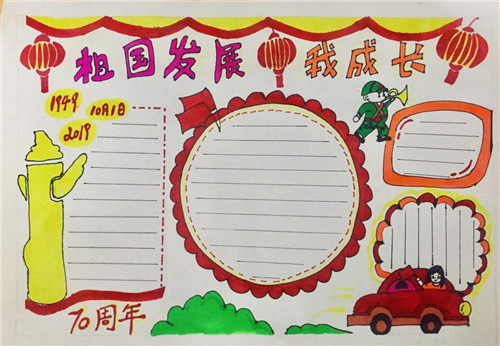 祖国发展 我成长
1949
10月1日
2019
70周年